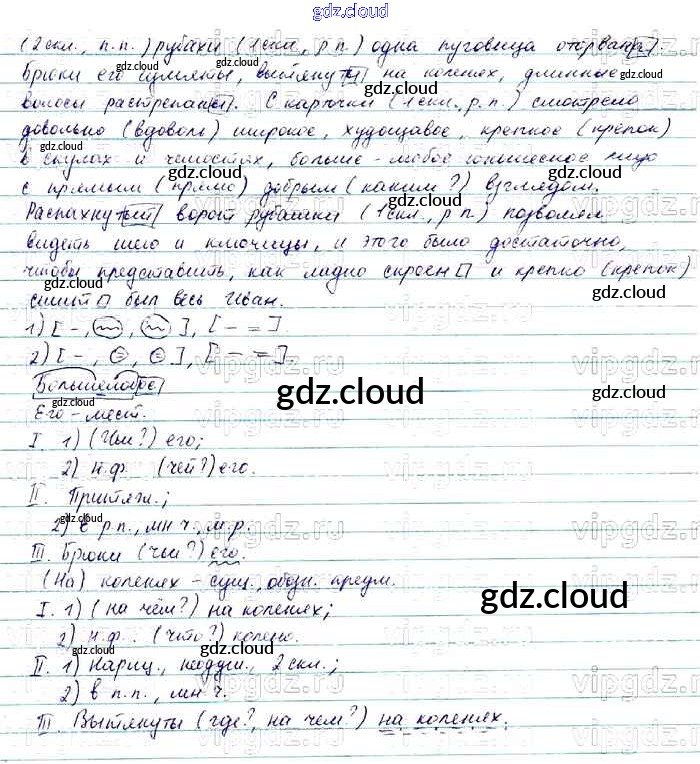 gdz.cloud
(2скл., п.п.) рубахи (1скл., р.п.) одна пуговица оторвана.
Брюки его измяты, вытянуты на коленях, длинные
волосы растрепаны. С карточки (1скл., р.п.) смотрело
довольно (вдоволь) широкое, худощавое, крепкое (крепок)
в скулах и челюстях, больше-лобое юношеское лицо
с прямым (прямо) добрым (каким?) взглядом.
Распахнутый ворот рубашки (1скл., р.п.) позволял
видеть шею и ключицы, и этого было достаточно,
чтобы представить, как ладно скроен и крепко (крепок)
сшит был весь Иван.
1) [ – , , ], [ – = ].
2) [ – , О, О ], [ – = ].
Большелобое
Его - мест.
I. 1) (Чьи?) его;
2) н.ф. (чей?) его.
II. Притяж.;
2) в р.п., мн ч., м.р.
III. Брюки (чьи?) его.
(На) коленях – сущ., обозн. предм.
I. 1) (на чём?) на коленях;
2) н.ф. (что?) колено.
II. 1) Нариц., неодуш., 2 скл.;
2) в п.п., мн ч.
III. Вытянуты (где?, на чем?) на коленях.
gdz.cloud
gdz.cloud
gdz.cloud
gdz.cloud
gdz.cloud
gdz.cloud
gdz.cloud
gdz.cloud
gdz.cloud
gdz.cloud
gdz.cloud
gdz.cloud
gdz.cloud